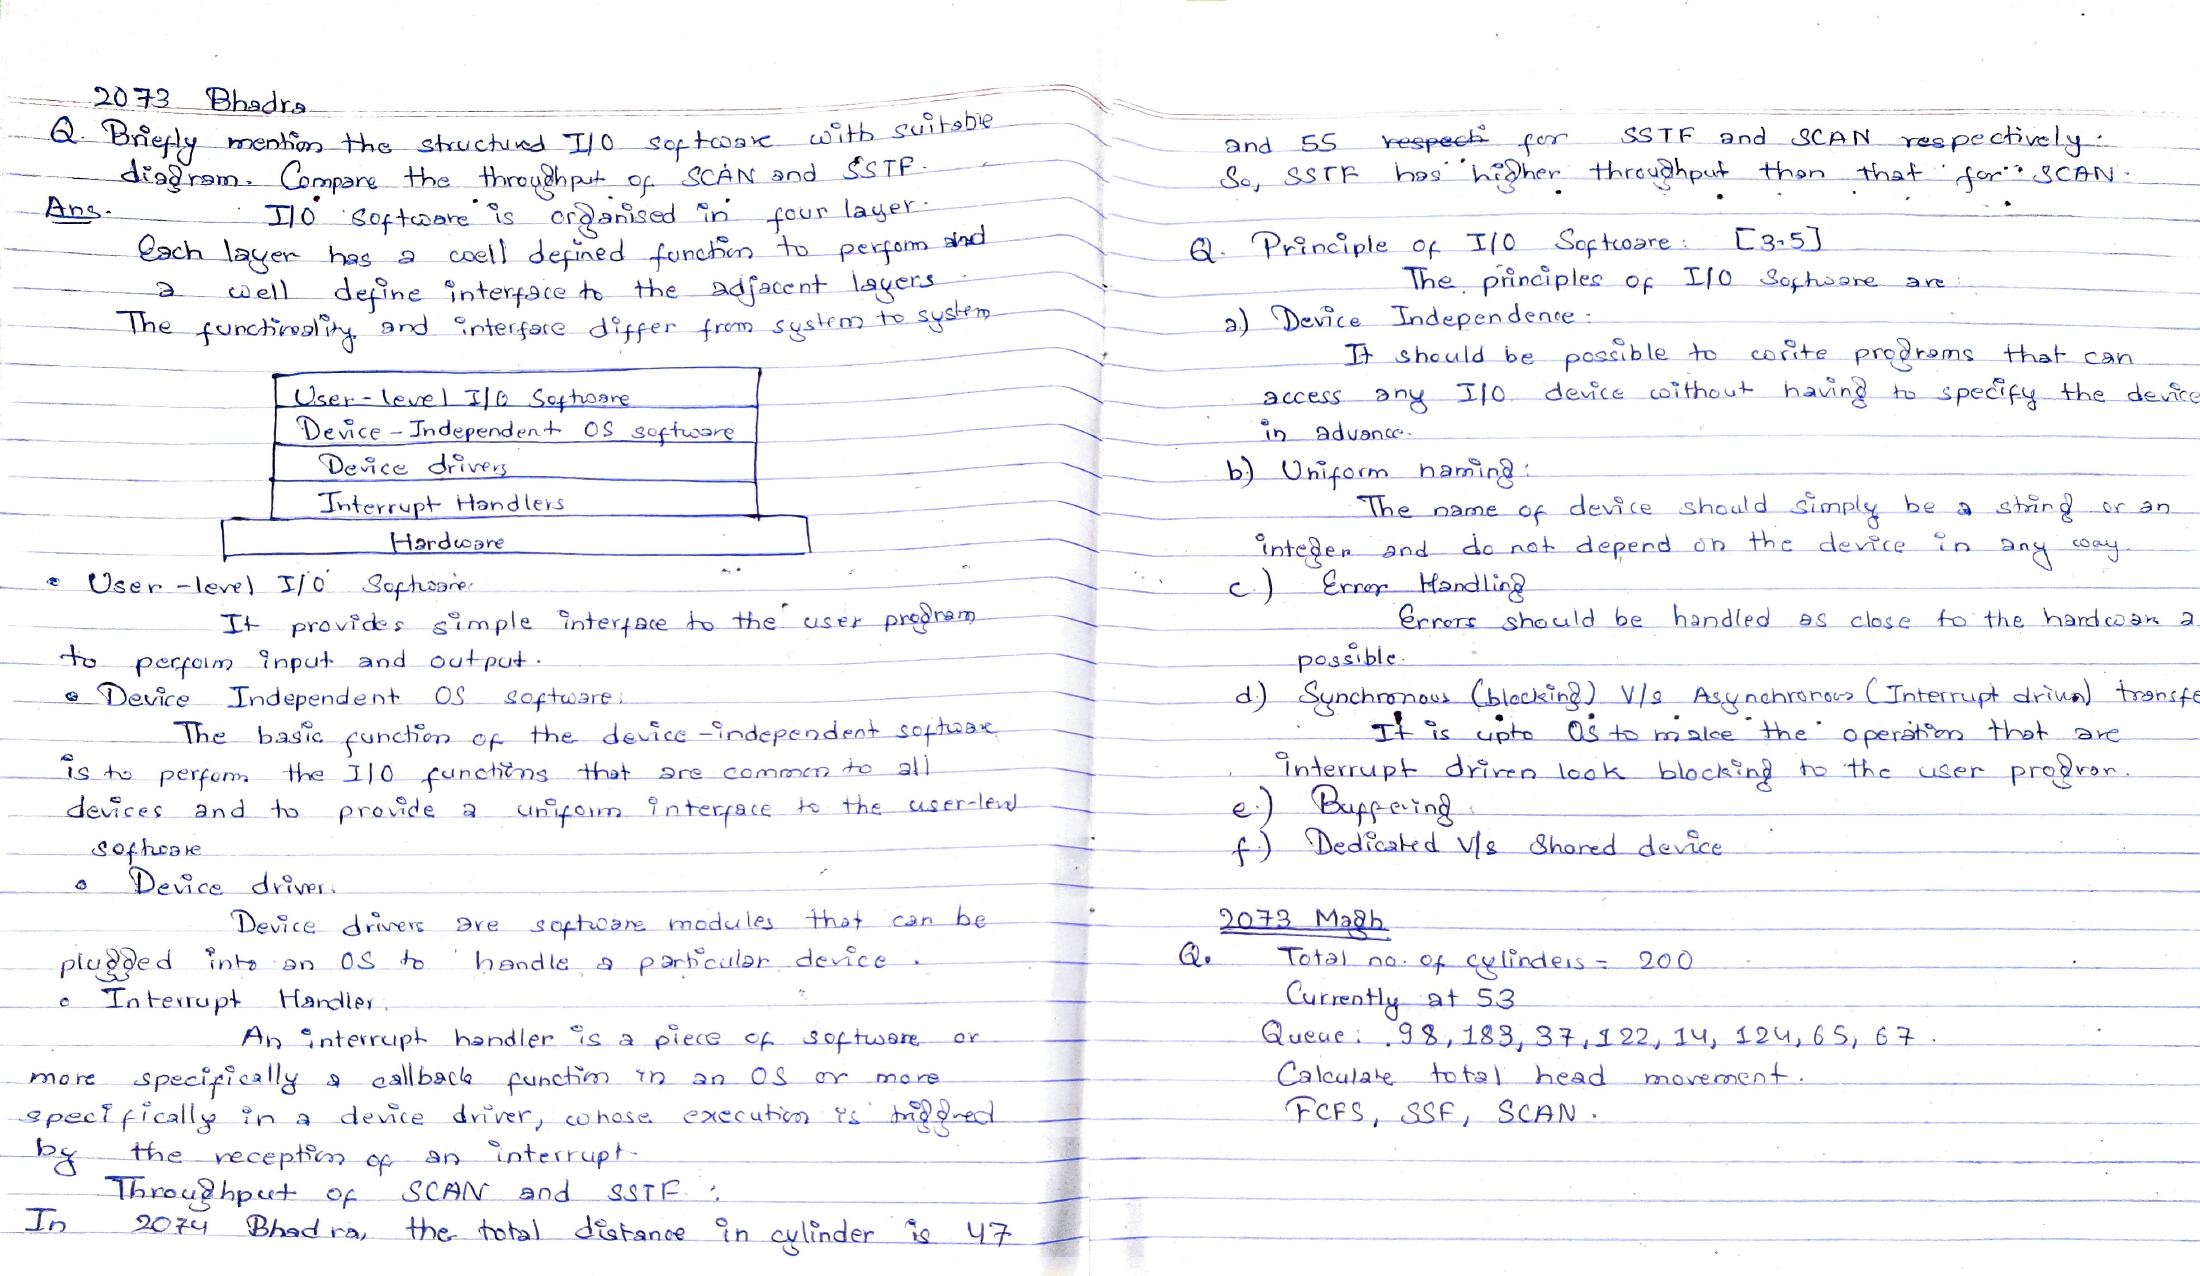 2073 Bhadra
Q. Briefly mention the structured I/O software with suitable
diagram. Compare the throughput of SCAN and SSTF.
Ans. I/O software is organised in four layer.
Each layer has a well defined function to perform and
a well define interface to the adjacent layers.
The functionality and interface differ from system to system
User-level I/O Software
Device-Independent OS software
Device drivers
Interrupt Handlers
Hardware
• User-level I/O Software:
It provides simple interface to the user program
to perform input and output.
• Device Independent OS software:
The basic function of the device-independent software
is to perform the I/O functions that are common to all
devices and to provide a uniform interface to the user-level
software
• Device driver:
Device drivers are software modules that can be
plugged into an OS to handle a particular device.
• Interrupt Handler:
An interrupt handler is a piece of software or
more specifically a callback function in an OS or more
specifically in a device driver, whose execution is triggred
by the reception of an interrupt.
Throughput of SCAN and SSTF:
In 2074 Bhadra, the total distance in cylinder is 47
and 55 respecti for SSTF and SCAN respectively.
So, SSTF has higher throughput than that for SCAN.
Q. Principle of I/O Software: [3.5]
The principles of I/O Software are:
a.) Device Independence:
It should be possible to write programs that can
access any I/O device without having to specify the device
in advance.
b.) Uniform naming:
The name of device should simply be a string or an
integer and do not depend on the device in any way
c.) Error Handling
Errors should be handled as close to the hardware a
possible.
d.) Synchronous (blocking) V/s Asynchronous (Interrupt driven) transfe
It is upto OS to make the operation that are
interrupt driven look blocking to the user program.
e.) Buffering
f.) Dedicated V/s Shared device
2073 Magh
Q. Total no. of cylinders = 200
Currently at 53
Queue: 98, 183, 37, 122, 14, 124, 65, 67.
Calculate total head movement.
FCFS, SSF, SCAN.